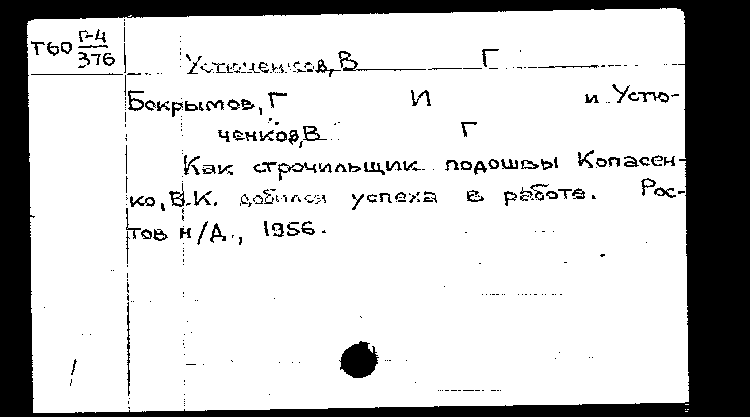 Т60 Г-4
376
Устюченков, В Г
Бокрымов, Г И и Устю-
ченков, В Г
Как строчильщик подошвы Копасен-
ко, В.К. добился успеха в работе. Рос-
тов н/Д., 1956.